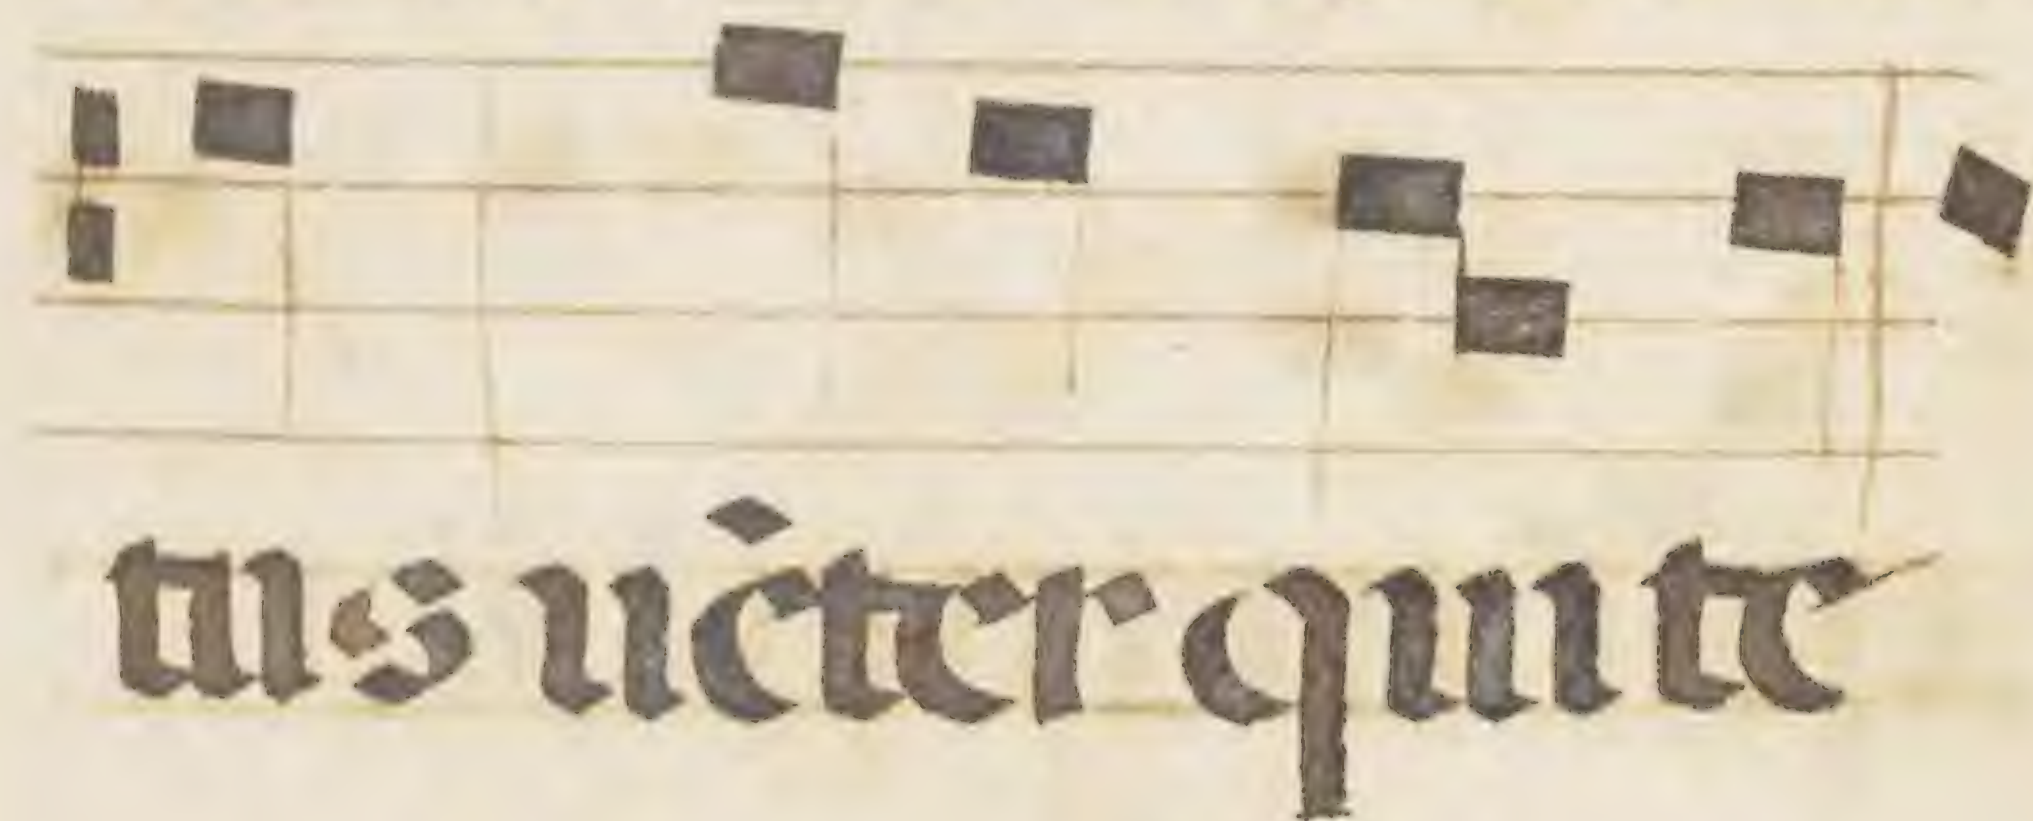 tus uēter qui te